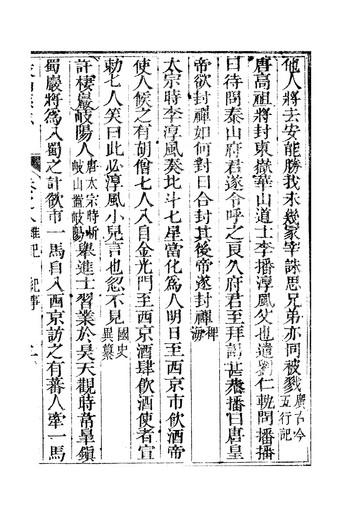 他人將去安能勝我未幾家宰誅思兄弟亦同被戮廣古今五行記
唐高祖將封東嶽華山道士李播淳風父也遣劉仁軌問播播
曰待問泰山府君遂令呼之良久府君至拜謁甚恭播曰唐皇
帝欲封禪如何對曰合封其後帝遂封禪稗海
太宗時李淳風奏北斗七星當化爲人明日至西京市飲酒帝
使人候之有胡僧七人入自金光門至西京酒肆飲酒使者宣
勅七人笑曰此必淳風小兒言也忽不見國史異纂
許棲巖岐陽人唐太宗時析岐山置岐陽舉進士習業於昊天觀時韋皐鎮
蜀巖將爲入蜀之計欲市一馬自入西京訪之有蕃人牽一馬
雜記